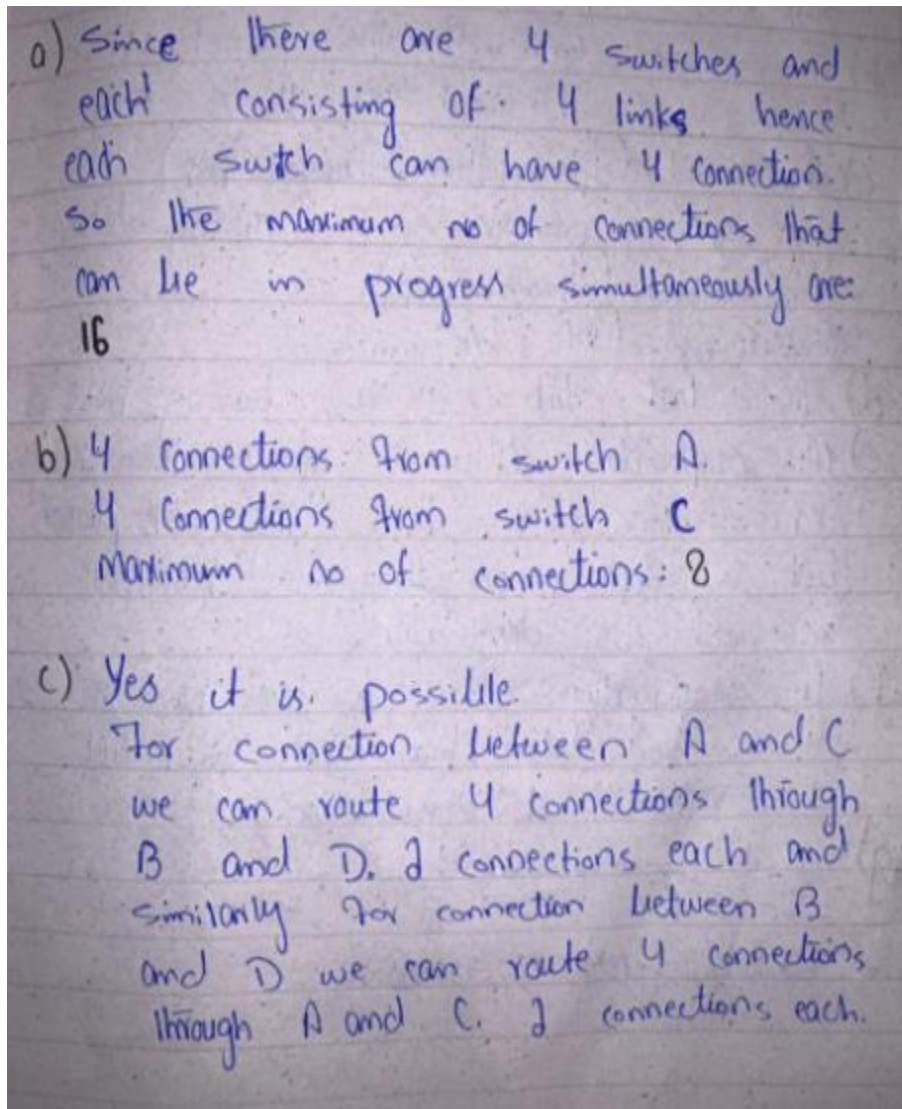 a) Since there are 4 switches and
each consisting of 4 links hence
each switch can have 4 connection.
So the maximum no of connections that
can be in progress simultaneously are:
16
b) 4 connections from switch A.
4 Connections from switch C
Maximum no of connections: 8
c) Yes it is possible.
For connection between A and C
we can route 4 connections through
B and D. 2 connections each and
similarly for connection between B
and D we can route 4 connections
through A and C. 2 connections each.